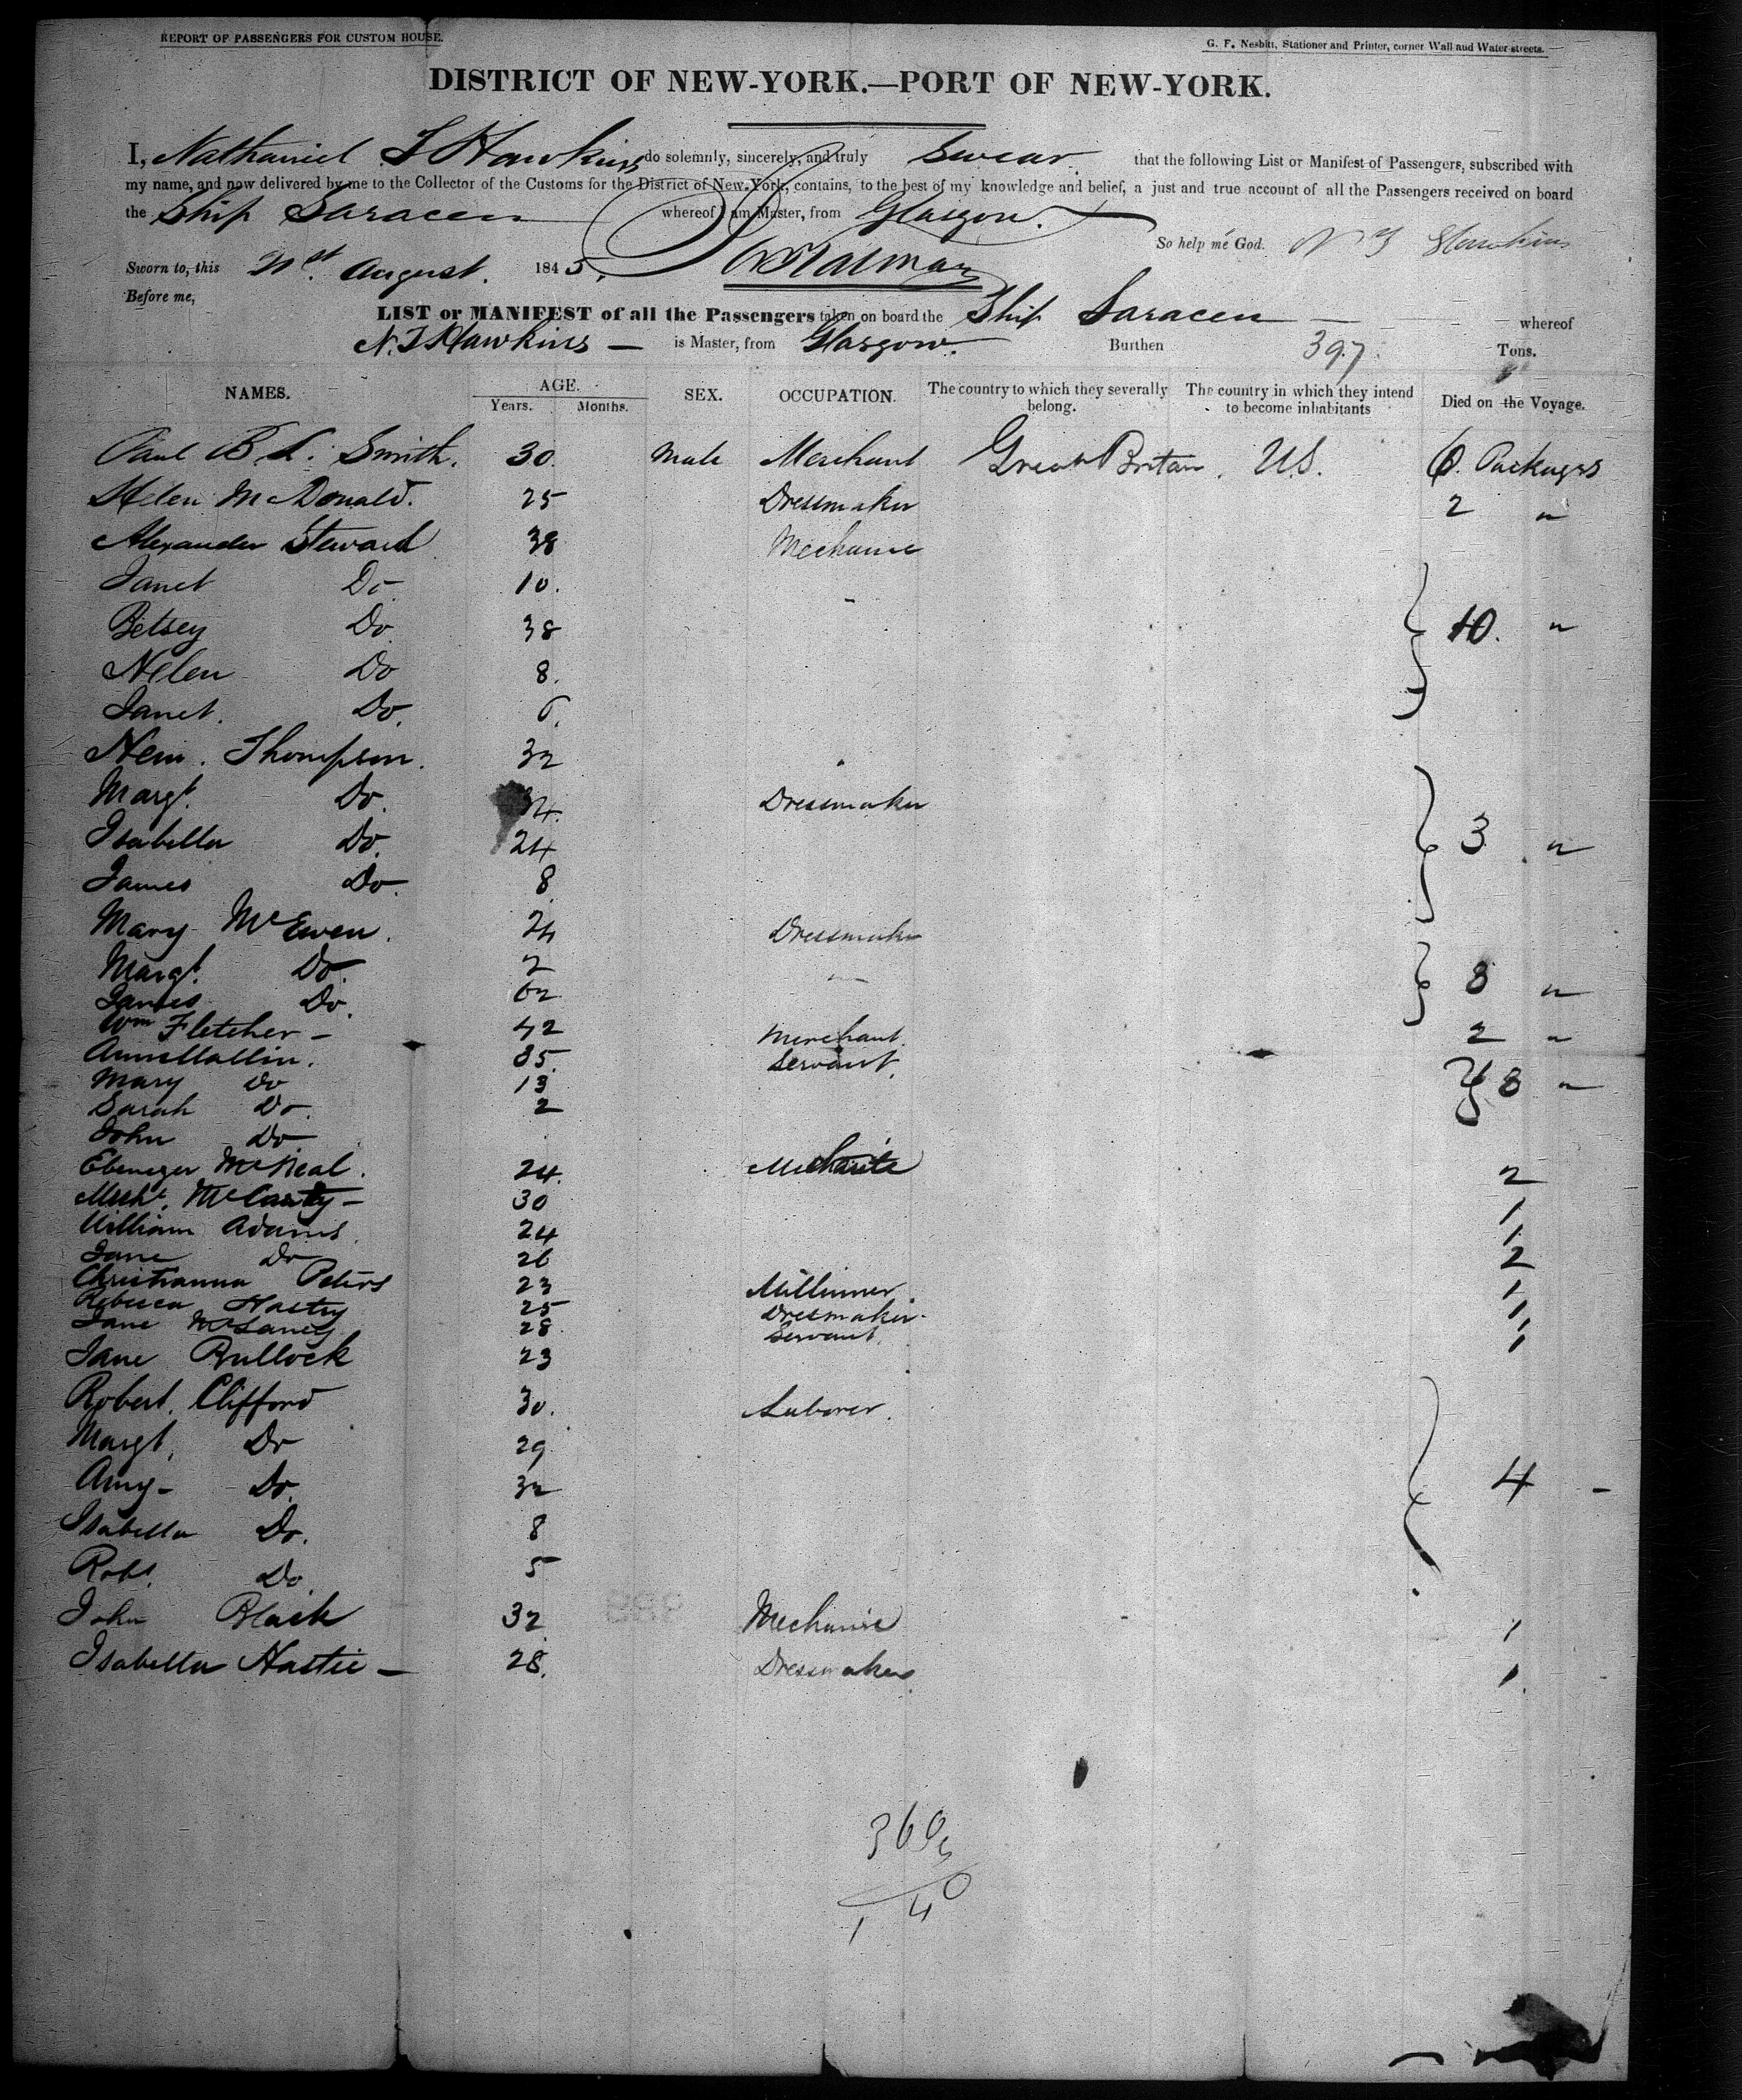 REPORT OF PASSENGERS FOR CUSTOM HOUSE.
G. F. Nesbitt, Stationer and Printer, corner Wall and Water streets.
DISTRICT OF NEW-YORK.—PORT OF NEW-YORK.
I, Nathaniel T Hawkins do solemnly, sincerely, and truly Swear that the following List or Manifest of Passengers, subscribed with
my name, and now delivered by me to the Collector of the Customs for the District of New-York, contains, to the best of my knowledge and belief, a just and true account of all the Passengers received on board
the Ship Saracen whereof I am Master, from Glasgow.
So help me God. N T Hawkins
Sworn to, this 21st August. 1845,
Before me,
LIST or MANIFEST of all the Passengers taken on board the Ship Saracen — whereof
N. T Hawkins — is Master, from Glasgow. Burthen 397. Tons.
NAMES. AGE. Years. Months. SEX. OCCUPATION. The country to which they severally belong. The country in which they intend to become inhabitants Died on the Voyage.
Paul B L. Smith. 30. Male Merchant Great Britan. U.S. 6. Packages
Helen McDonald. 25 Dressmaker 2 "
Alexander Steward 38 Mechanic
Janet Do 10.
Betsey Do 38 10. "
Helen Do 8.
Janet. Do. 6.
Thompson. 32
Margt. Do. Dressmaker
Isabella Do. 24 3 "
James Do. 8
Mary McEwen. 24 Dressmaker
Margt. Do. 2 8 "
James Do. 62
Wm Fletcher — 42 Merchant. 2 "
Ann Mallin. 35. Servant.
Mary Do 13 3 "
Sarah Do. 2
John Do
Ebenezer McNeal. 24. 2
McCarty — 30 1
William Adams. 24 1
Jane Do 26 2
Christianna Peters 23 Millinner 1
Rebecca Hasty 25 Dresmaker. 1
Jane 28. Servant. 1
Jane Bullock 23
Robert. Clifford 30. Laborer.
Margt. Do 29
Amy — Do. 32 4 -
Isabella Do. 8
Robt. Do 5
John Black 32 Mechanic 1
Isabella Hastie — 28. Dressmaker 1.
140